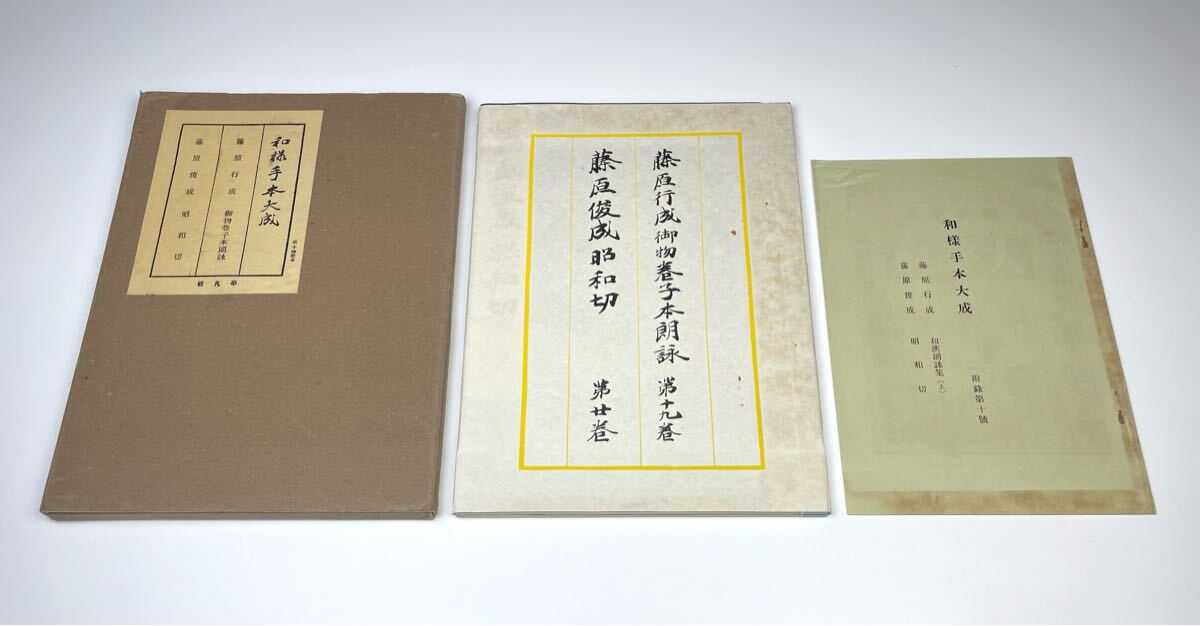 和樣手本大成
藤原行成 御物卷子本朗詠
藤原俊成 昭和切
第十囘配本
平凡社
藤原行成御物巻子本朗詠 第十九巻
藤原俊成昭和切 第廿巻
和樣手本大成
附錄第十號
藤原行成 和漢朗詠集(上)
藤原俊成 昭和切